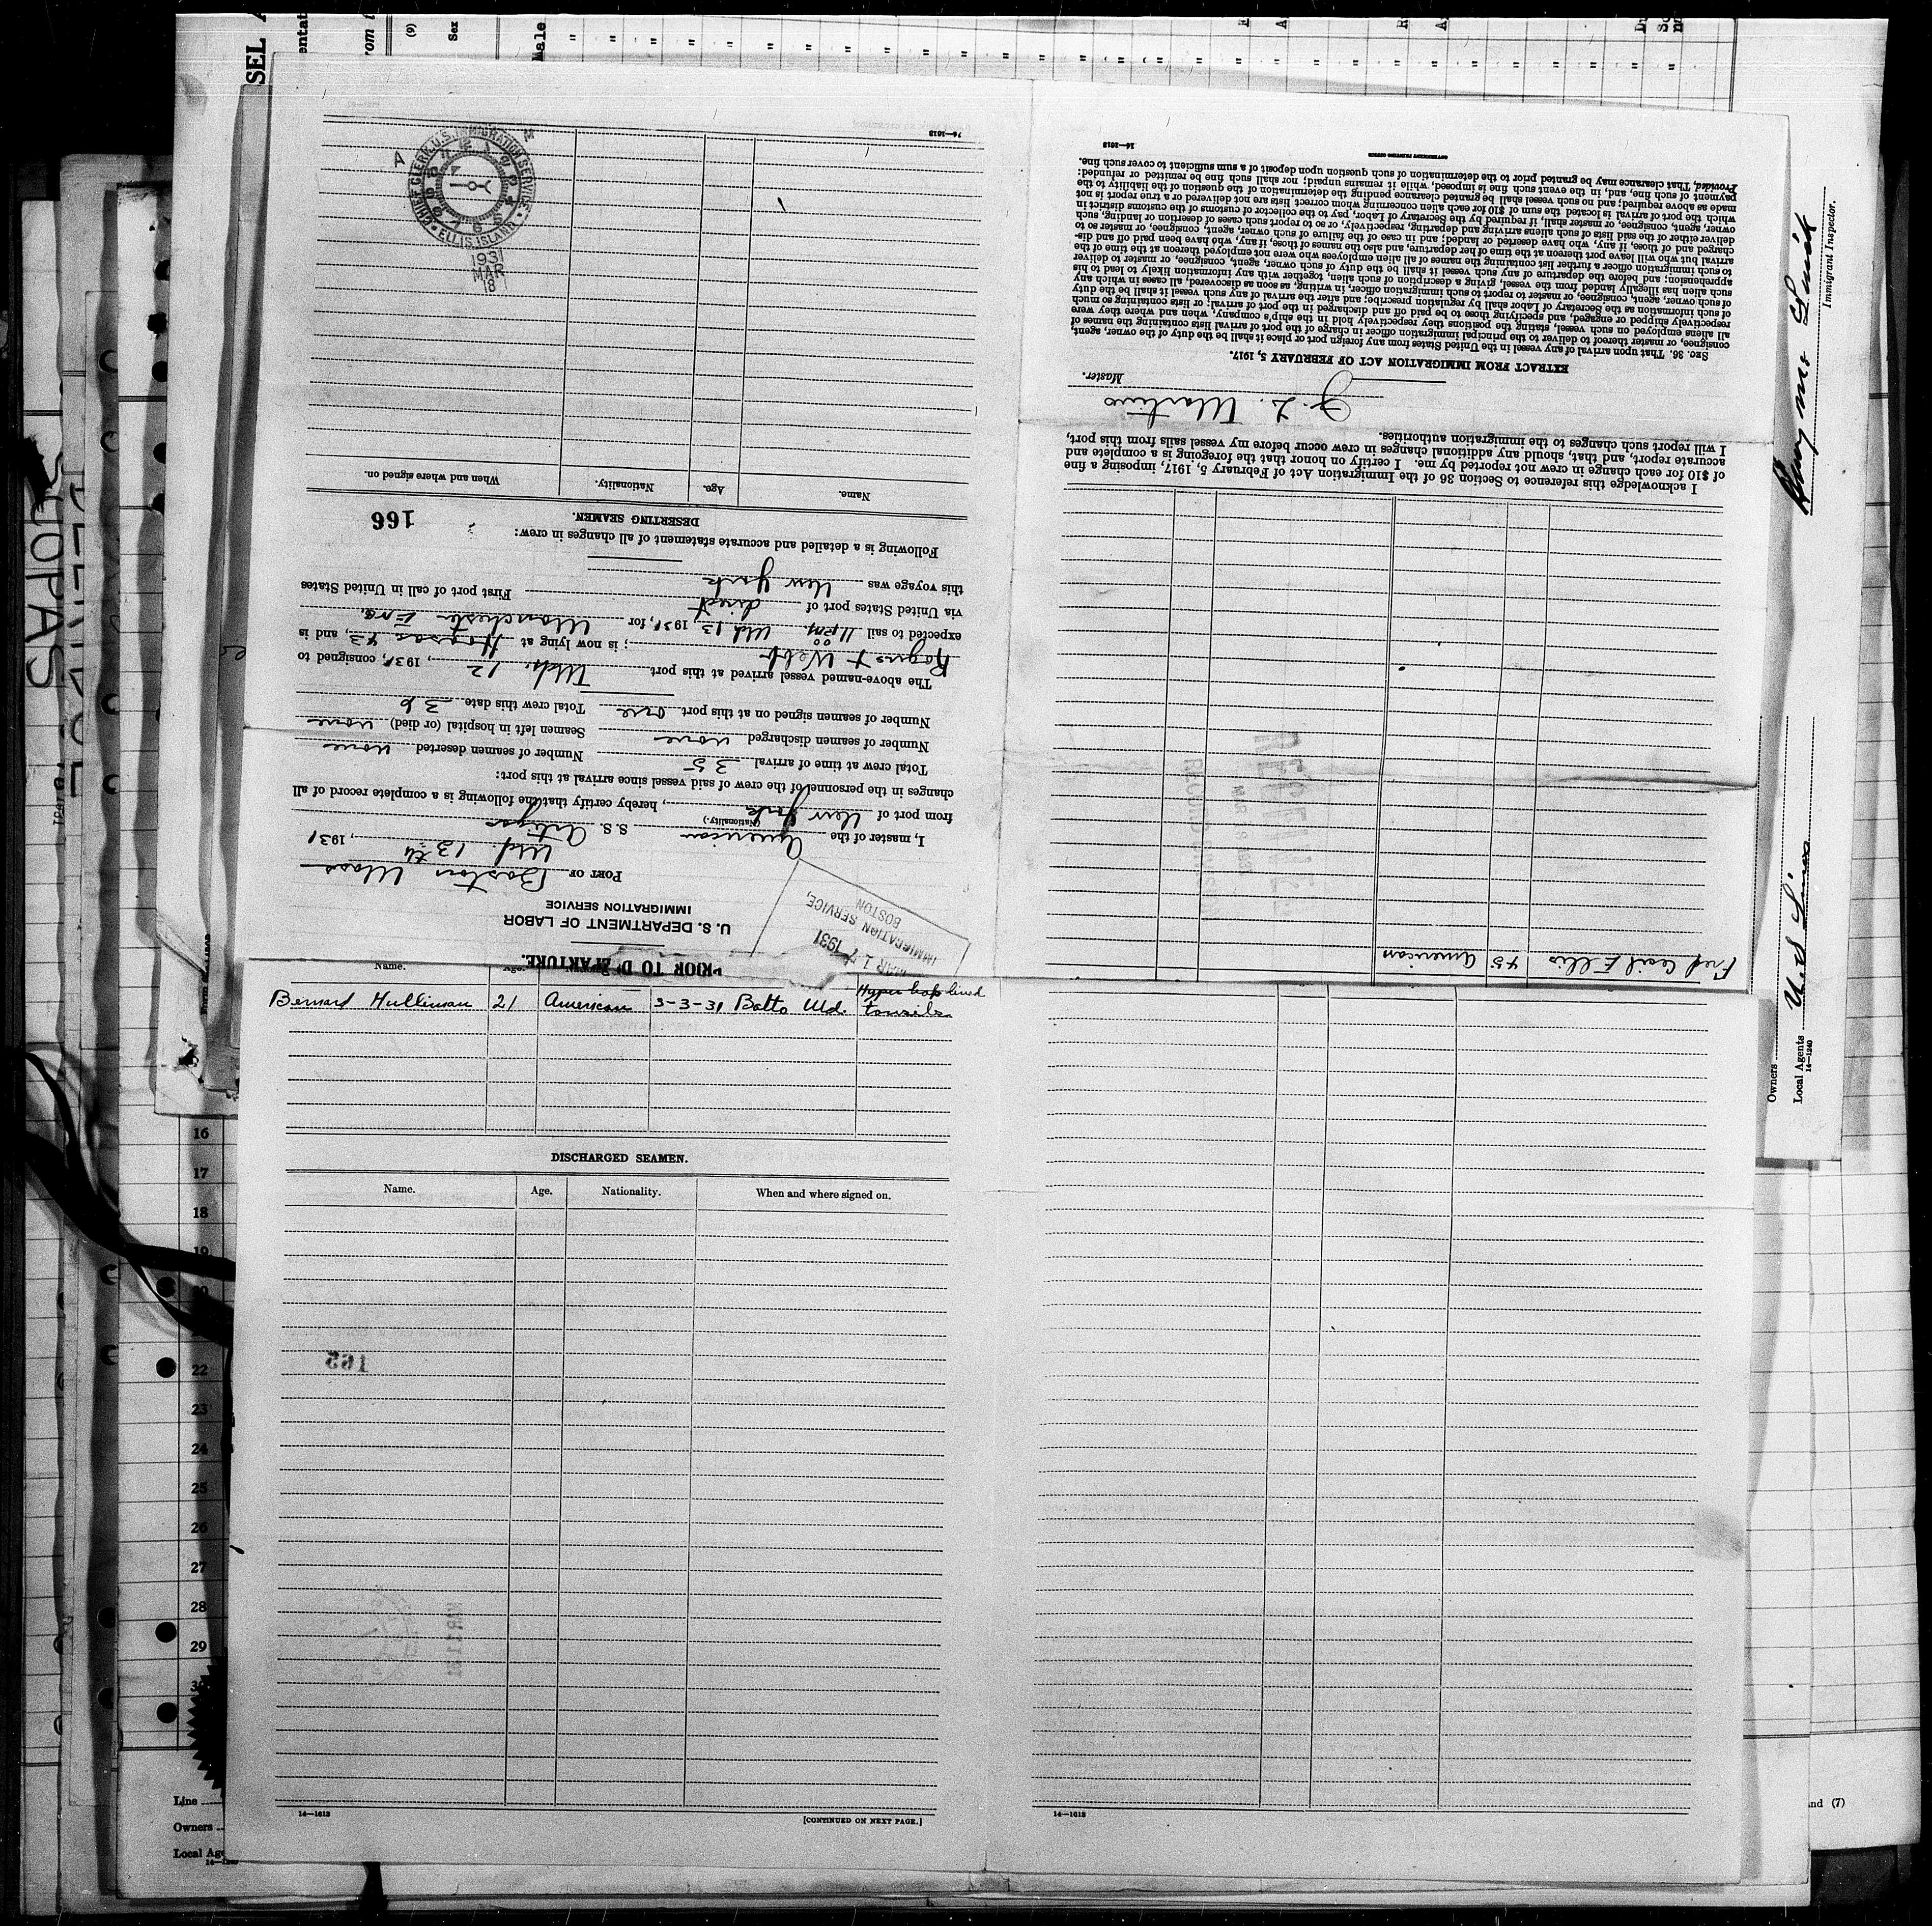 PRIOR TO DEPARTURE.
U. S. DEPARTMENT OF LABOR
IMMIGRATION SERVICE
MAR 17 1931
IMMIGRATION SERVICE,
BOSTON
PORT OF Boston Mass
Mch 13th, 1931
I, master of the American S. S. Artigas
(Nationality.)
from port of New York, hereby certify that the following is a complete record of all
changes in the personnel of the crew of said vessel since arrival at this port:
Total crew at time of arrival 35 Number of seamen deserted none
Number of seamen discharged none Seamen left in hospital (or died) none
Number of seamen signed on at this port one Total crew this date 36
The above-named vessel arrived at this port Mch. 12, 1931, consigned to
Rogers & Webb; is now lying at Hoosac 43, and is
expected to sail 11 PM Mch 13 1931, for Manchester Eng.
via United States port of direct First port of call in United States
this voyage was New York
Following is a detailed and accurate statement of all changes in crew:
166
DESERTING SEAMEN.
Name. Age. Nationality. When and where signed on.
CHIEF CLERK, U.S. IMMIGRATION SERVICE
ELLIS ISLAND
A M
1931
MAR
18
14—1613
Fred Cecil Ellis 45 American
I acknowledge this reference to Section 36 of the Immigration Act of February 5, 1917, imposing a fine
of $10 for each change in crew not reported by me. I certify on honor that the foregoing is a complete and
accurate report, and that, should any additional changes in crew occur before my vessel sails from this port,
I will report such changes to the immigration authorities.
Master.
EXTRACT FROM IMMIGRATION ACT OF FEBRUARY 5, 1917.
SEC. 36. That upon arrival of any vessel in the United States from any foreign port or place it shall be the duty of the owner, agent,
consignee, or master thereof to deliver to the principal immigration officer in charge of the port of arrival lists containing the names of
all aliens employed on such vessel, stating the positions they respectively hold in the ship's company, when and where they were
respectively shipped or engaged, and specifying those to be paid off and discharged in the port of arrival; or lists containing so much
of such information as the Secretary of Labor shall by regulation prescribe; and after the arrival of any such vessel it shall be the duty
of such owner, agent, consignee, or master to report to such immigration officer, in writing, as soon as discovered, all cases in which any
such alien has illegally landed from the vessel, giving a description of such alien, together with any information likely to lead to his
apprehension; and before the departure of any such vessel it shall be the duty of such owner, agent, consignee, or master to deliver
to such immigration officer a further list containing the names of all alien employees who were not employed thereon at the time of the
arrival but who will leave port thereon at the time of her departure, and also the names of those, if any, who have been paid off and dis-
charged and of those, if any, who have deserted or landed; and in case of the failure of such owner, agent, consignee, or master so to
deliver either of the said lists of such aliens arriving and departing, respectively, or so to report such cases of desertion or landing, such
owner, agent, consignee, or master, shall, if required by the Secretary of Labor, pay to the collector of customs of the customs district in
which the port of arrival is located the sum of $10 for each alien concerning whom correct lists are not delivered or a true report is not
made as above required; and no such vessel shall be granted clearance pending the determination of the question of the liability to the
payment of such fine, and, in the event such fine is imposed, while it remains unpaid; nor shall such fine be remitted or refunded:
Provided, That clearance may be granted prior to the determination of such question upon deposit of a sum sufficient to cover such fine.
14—1613
GOVERNMENT PRINTING OFFICE
Name. Age.
Bernard 21 American 3-3-31 Balto Md. tonsils
DISCHARGED SEAMEN.
Name. Age. Nationality. When and where signed on.
14—1613
[CONTINUED ON NEXT PAGE.]
14—1613
Immigrant Inspector.
Owners
Local Agents U.S. Lines
14—1240
(9)
Sex
Male
16
17
18
19
22
23
24
25
26
27
28
29
Line
Owners
and (7)